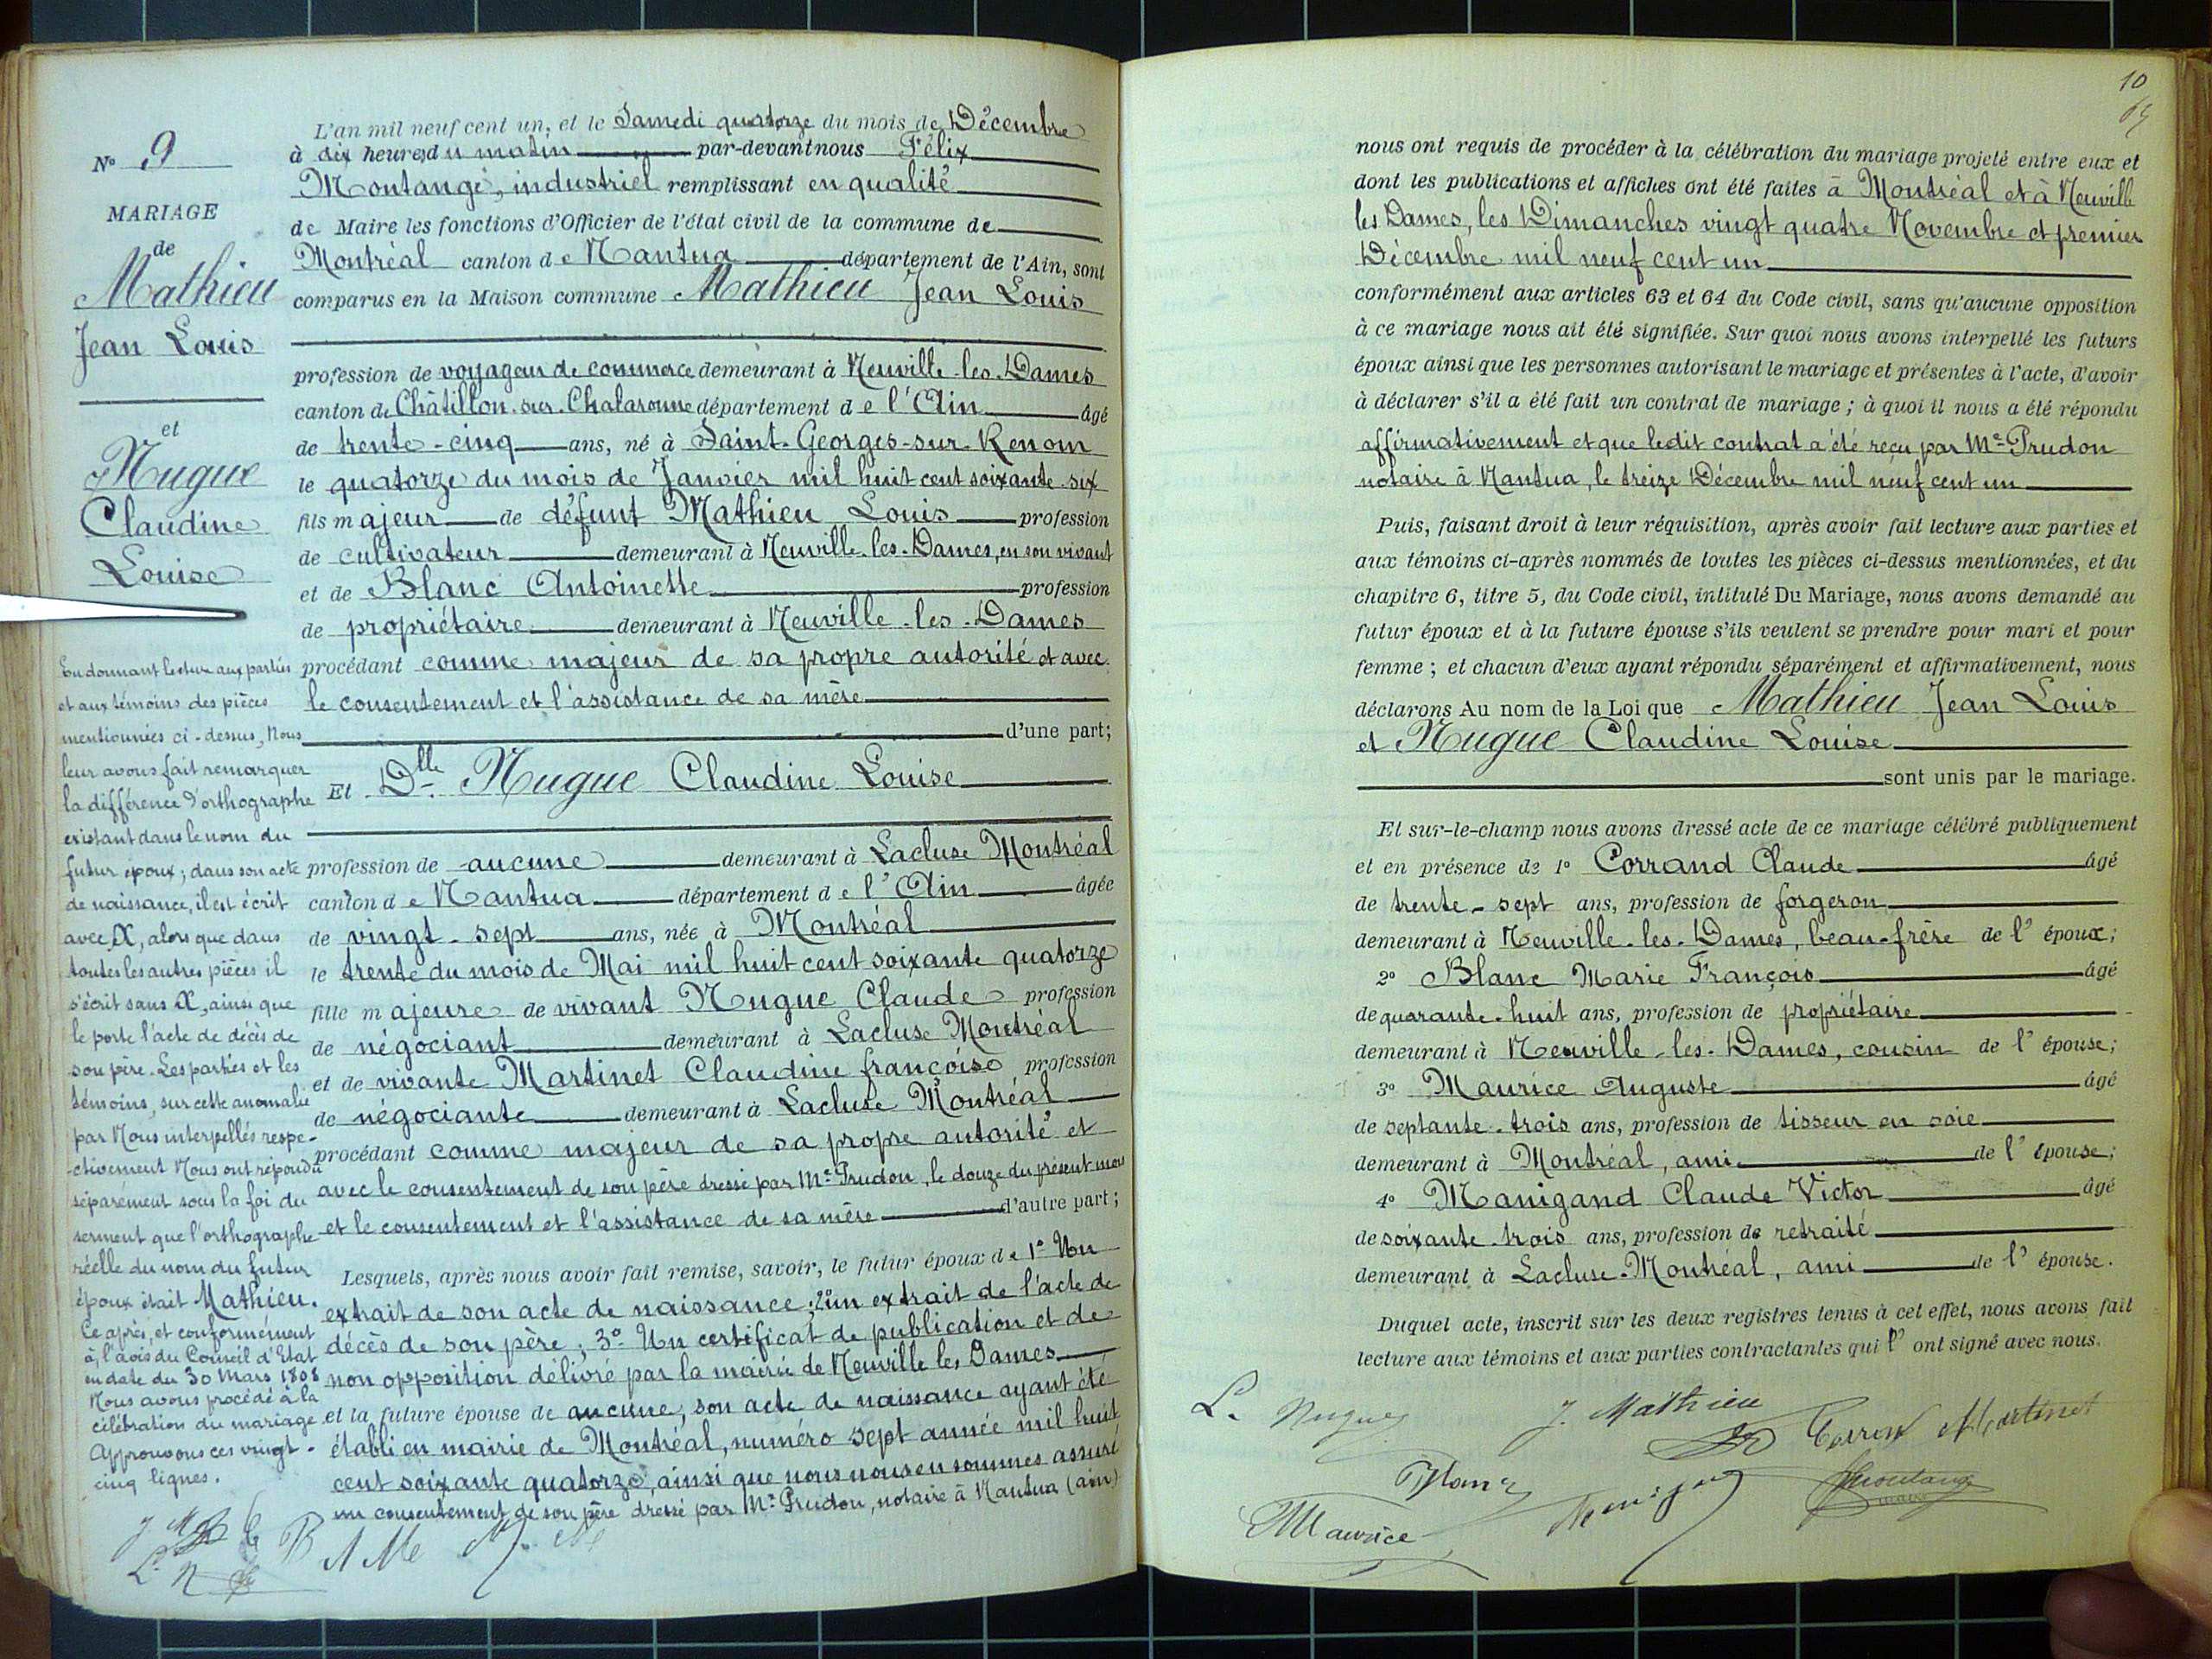 N° 9
MARIAGE
de
Mathieu
Jean Louis
et
Nugue
Claudine
Louise
En donnant lecture aux parties
et aux témoins des pièces
mentionnées ci-dessus, Nous
leur avons fait remarquer
la différence d'orthographe
existant dans le nom du
futur époux; dans son acte
de naissance, il est écrit
avec X, alors que dans
toutes les autres pièces il
s'écrit sans X, ainsi que
le porte l'acte de décès de
son père. Les parties et les
témoins, sur cette anomalie
par Nous interpellés respe-
-ctivement Nous ont répondu
séparément sous la foi du
serment que l'orthographe
réelle du nom du futur
époux était Mathieu.
Ce après, et conformément
à l'avis du Conseil d'Etat
en date du 30 Mars 1808
Nous avons procédé à la
célébration du mariage.
Approuvons ces vingt-
cinq lignes.
L'an mil neuf cent un, et le Samedi quatorze du mois de Décembre
à dix heures du matin par-devant nous Félix
Montange, industriel remplissant en qualité
de Maire les fonctions d'Officier de l'état civil de la commune de
Montréal canton de Nantua département de l'Ain, sont
comparus en la Maison commune Mathieu Jean Louis
profession de voyageur de commerce demeurant à Neuville-les-Dames
canton de Châtillon-sur-Chalaronne département de l'Ain âgé
de trente-cinq ans, né à Saint-Georges-sur-Renom
le quatorze du mois de Janvier mil huit cent soixante-six
fils majeur de défunt Mathieu Louis profession
de cultivateur demeurant à Neuville-les-Dames, en son vivant
et de Blanc Antoinette profession
de propriétaire demeurant à Neuville-les-Dames
procédant comme majeur de sa propre autorité et avec
le consentement et l'assistance de sa mère
d'une part;
Et Dlle Nugue Claudine Louise
profession de aucune demeurant à Lacluse Montréal
canton de Nantua département de l'Ain âgée
de vingt-sept ans, née à Montréal
le trente du mois de Mai mil huit cent soixante quatorze
fille majeure de vivant Nugue Claude profession
de négociant demeurant à Lacluse Montréal
et de vivante Martinet Claudine françoise profession
de négociante demeurant à Lacluse Montréal
procédant comme majeur de sa propre autorité et
avec le consentement de son père dressé par Me Prudon, le douze du présent mois
et le consentement et l'assistance de sa mère d'autre part;
Lesquels, après nous avoir fait remise, savoir, le futur époux de 1° Un
extrait de son acte de naissance; 2° un extrait de l'acte de
décès de son père; 3° Un certificat de publication et de
non opposition délivré par la mairie de Neuville les Dames
et la future épouse de aucune, son acte de naissance ayant été
établi en mairie de Montréal, numéro sept année mil huit
cent soixante quatorze, ainsi que nous nous en sommes assuré
un consentement de son père dressé par Me Prudon, notaire à Nantua (ain)
10
nous ont requis de procéder à la célébration du mariage projeté entre eux et
dont les publications et affiches ont été faites à Montréal et à Neuville
les Dames, les Dimanches vingt quatre Novembre et premier
Décembre mil neuf cent un
conformément aux articles 63 et 64 du Code civil, sans qu'aucune opposition
à ce mariage nous ait été signifiée. Sur quoi nous avons interpellé les futurs
époux ainsi que les personnes autorisant le mariage et présentes à l'acte, d'avoir
à déclarer s'il a été fait un contrat de mariage; à quoi il nous a été répondu
affirmativement et que ledit contrat a été reçu par Me Prudon
notaire à Nantua, le treize Décembre mil neuf cent un
Puis, faisant droit à leur réquisition, après avoir fait lecture aux parties et
aux témoins ci-après nommés de toutes les pièces ci-dessus mentionnées, et du
chapitre 6, titre 5, du Code civil, intitulé Du Mariage, nous avons demandé au
futur époux et à la future épouse s'ils veulent se prendre pour mari et pour
femme; et chacun d'eux ayant répondu séparément et affirmativement, nous
déclarons Au nom de la Loi que Mathieu Jean Louis
et Nugue Claudine Louise
sont unis par le mariage.
Et sur-le-champ nous avons dressé acte de ce mariage célébré publiquement
et en présence de 1° Corrand Claude âgé
de trente-sept ans, profession de forgeron
demeurant à Neuville-les-Dames, beau-frère de l'époux;
2° Blanc Marie François âgé
de quarante-huit ans, profession de propriétaire
demeurant à Neuville-les-Dames, cousin de l'épouse;
3° Maurice Auguste âgé
de septante-trois ans, profession de tisseur en soie
demeurant à Montréal, ami de l'épouse;
4° Manigand Claude Victor âgé
de soixante-trois ans, profession de retraité
demeurant à Lacluse-Montréal, ami de l'épouse.
Duquel acte, inscrit sur les deux registres tenus à cet effet, nous avons fait
lecture aux témoins et aux parties contractantes qui l'ont signé avec nous.
L. Nugue J. Mathieu Martinet
Blanc
Maurice